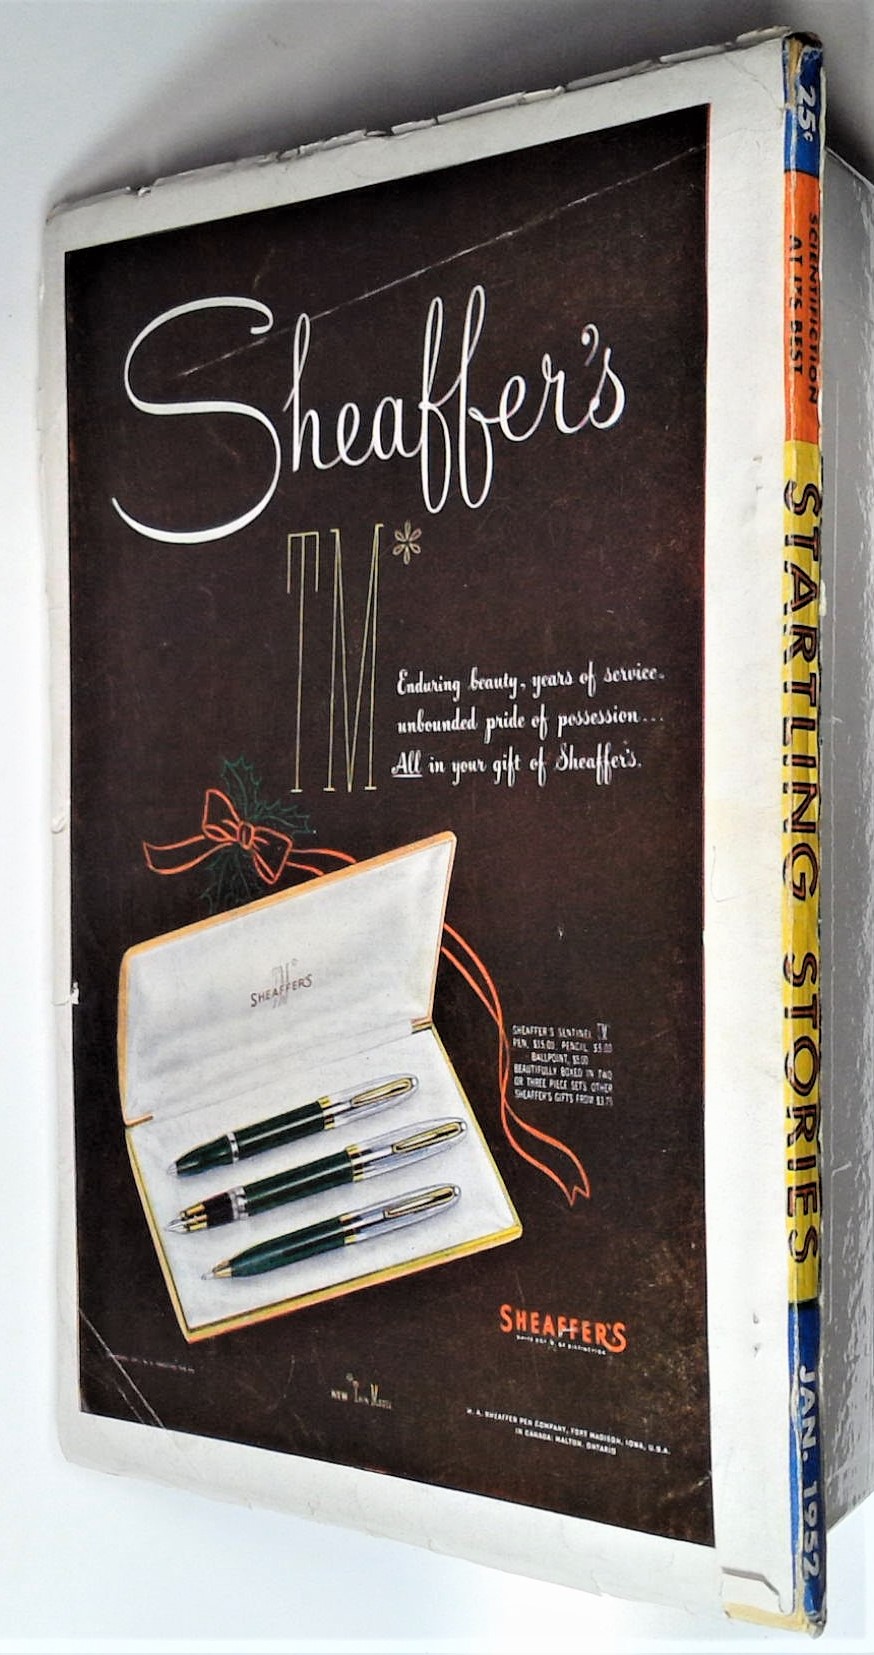 Sheaffer's
TM*
Enduring beauty, years of service.
unbounded pride of possession...
All in your gift of Sheaffer's.
SHEAFFER'S
SHEAFFER'S SENTINEL TM
PEN, $15.00. PENCIL, $5.00
BALLPOINT, $5.00
BEAUTIFULLY BOXED IN TWO
OR THREE PIECE SETS. OTHER
SHEAFFER'S GIFTS FROM $3.75
SHEAFFER'S
NEW
W. A. SHEAFFER PEN COMPANY, FORT MADISON, IOWA, U.S.A.
IN CANADA: MALTON, ONTARIO
25¢
SCIENTIFICTION
AT ITS BEST
STARTLING STORIES
JAN. 1952